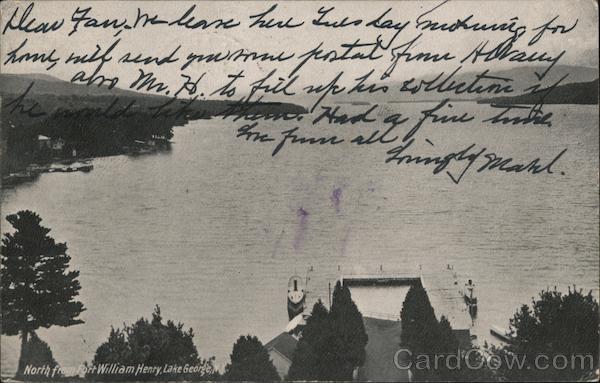 Dear Fan, We leave here Tuesday morning for
home, will send you some postals from Albany
also Mr. H. to fill up his collection if
he would like them. Had a fine time.
Love from all
Lovingly Mabel.
North from Fort William Henry, Lake George, N
CardCow.com